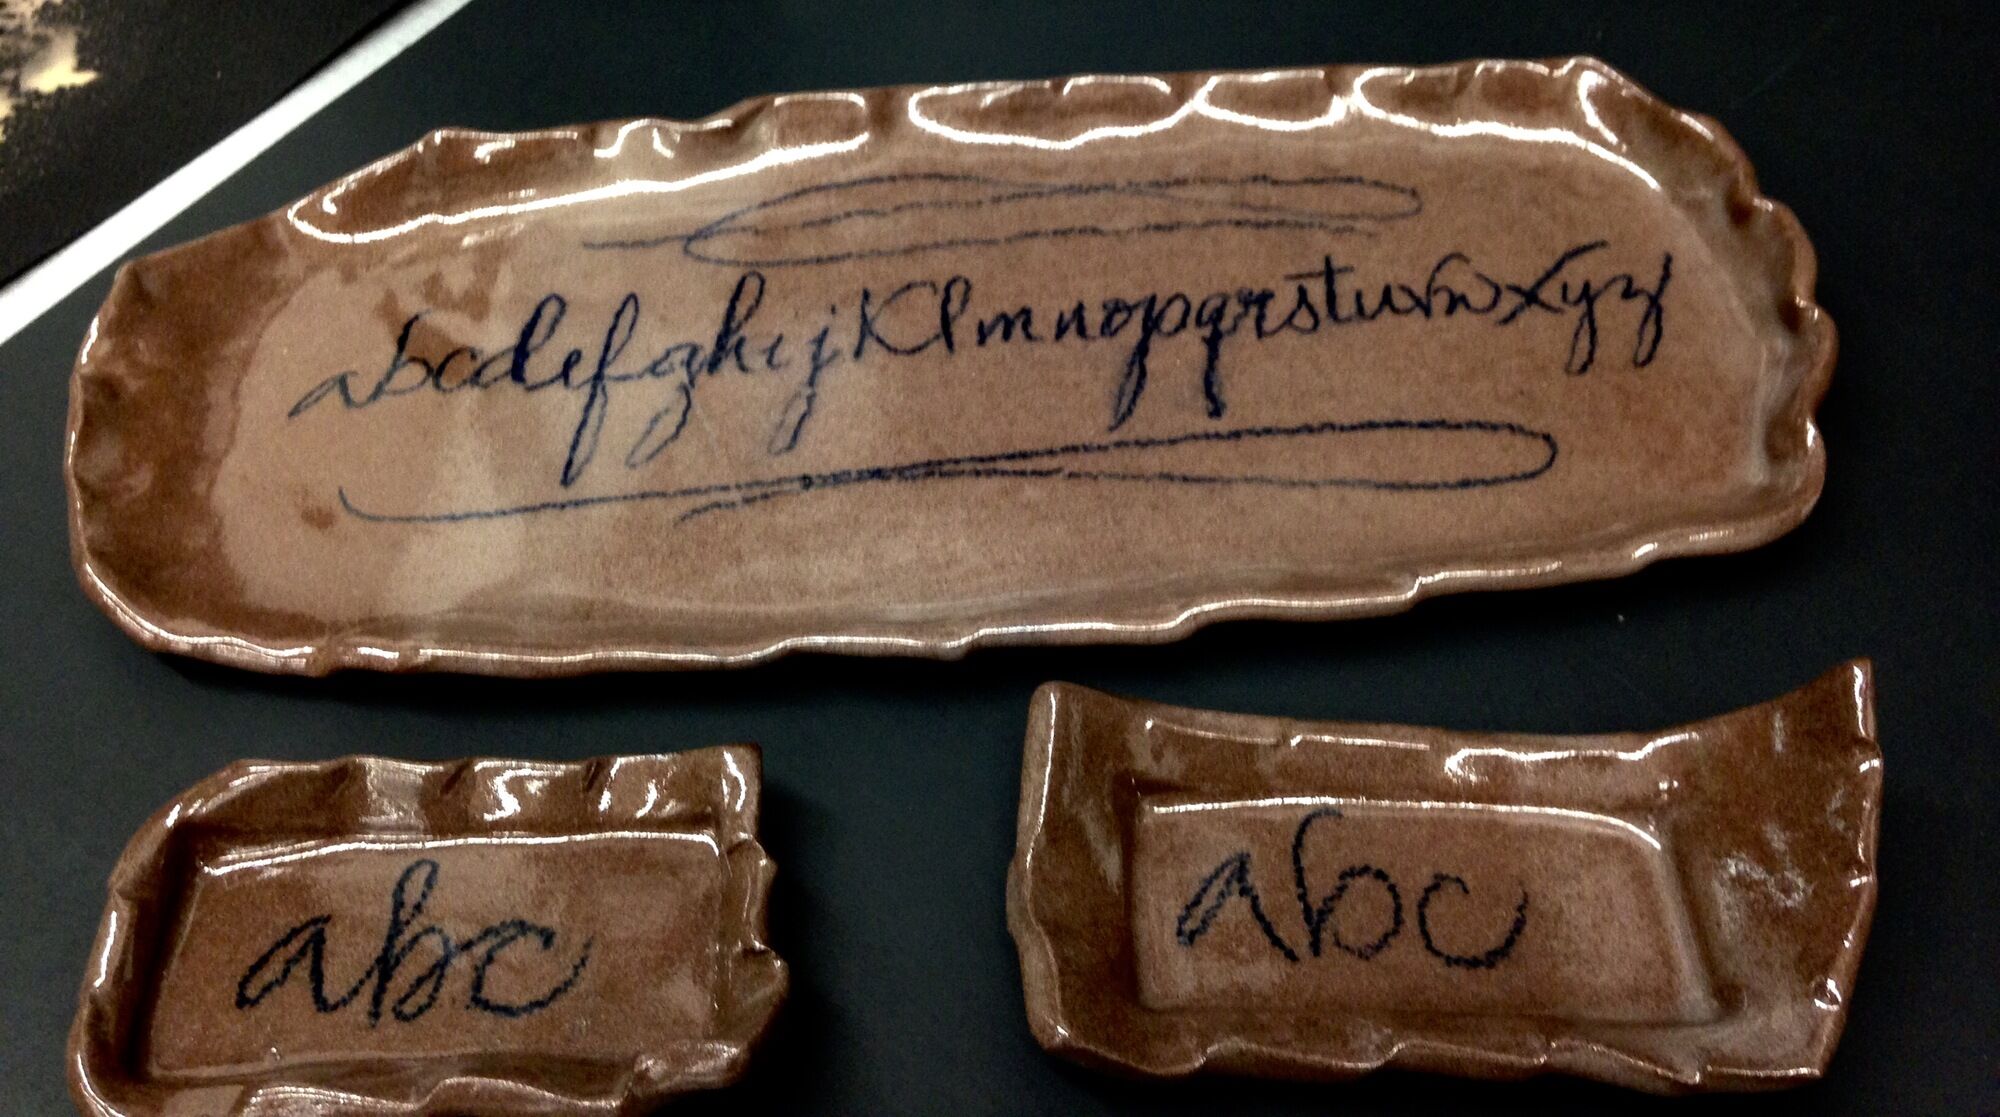 abcdefghijklmnopqrstuvwxyz
abc
abc